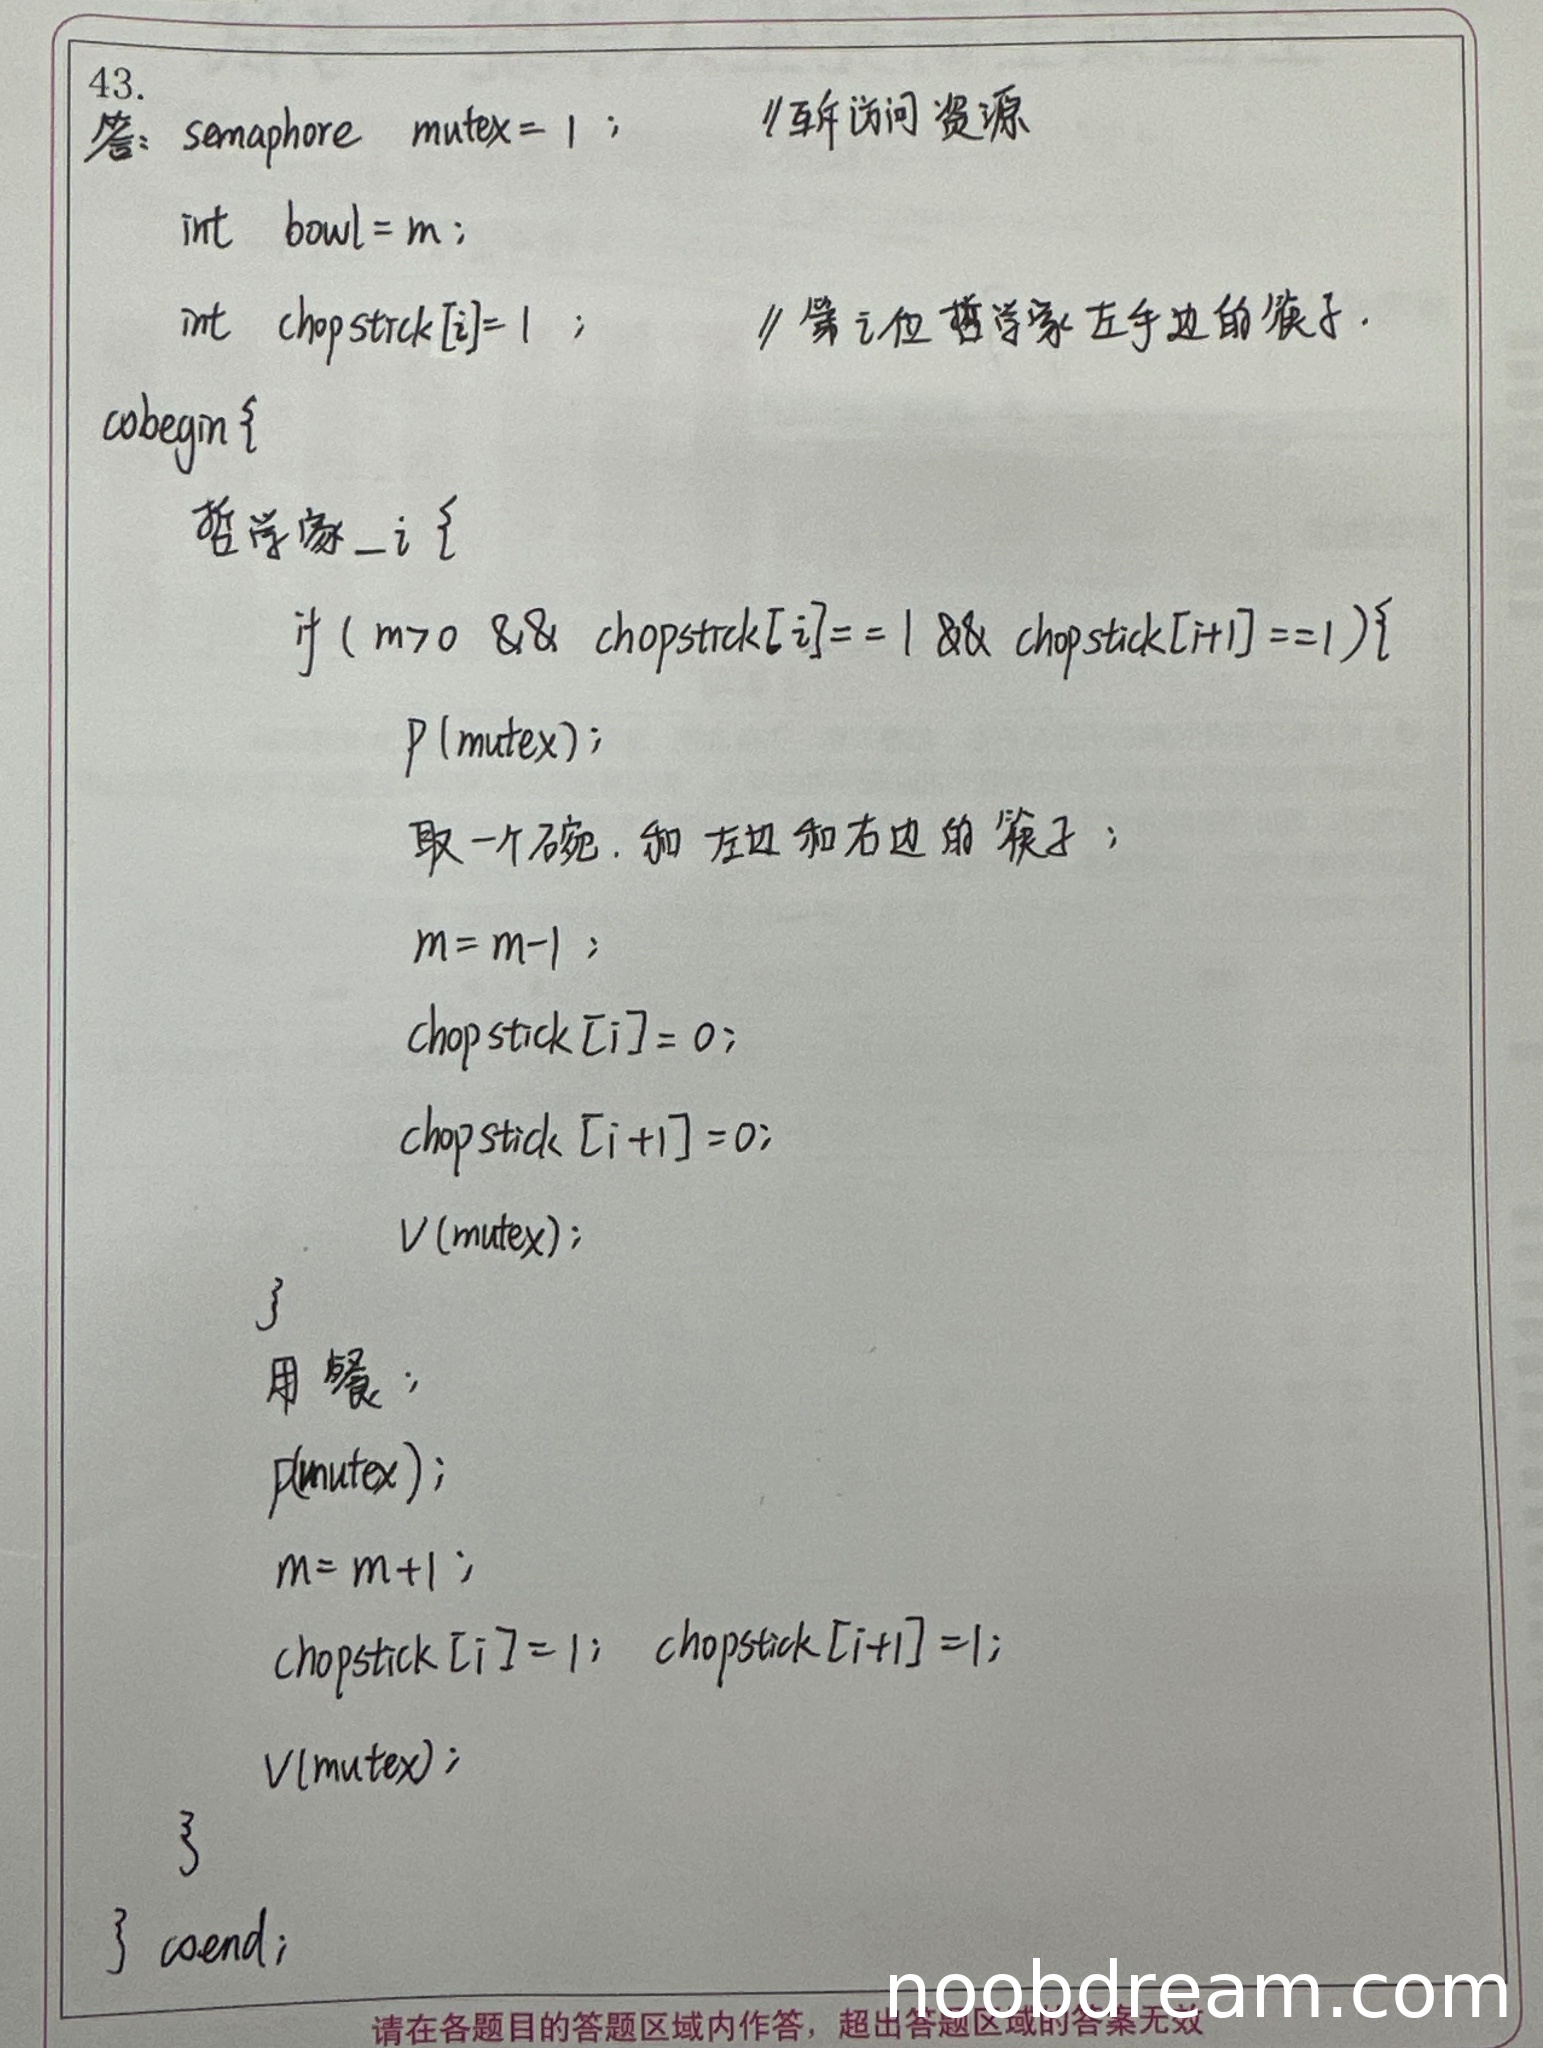 43.
答: semaphore mutex = 1 ; //互斥访问资源
int bowl = m ;
int chopstick[i]=1 ; // 第i位哲学家左手边的筷子.
cobegin{
哲学家_i {
if ( m>0 && chopstick[i]==1 && chopstick[i+1]==1){
P(mutex);
取一个碗.和左边和右边的筷子;
m = m-1 ;
chopstick[i] = 0;
chopstick[i+1]=0;
V(mutex);
}
用餐;
P(mutex);
m = m+1 ;
chopstick[i]=1; chopstick[i+1]=1;
V(mutex);
}
} coend;
noobdream.com
请在各题目的答题区域内作答，超出答题区域的答案无效